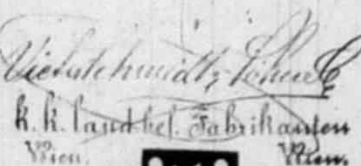 Victor Schmidt & Söhne
k. k. landbef. Fabrikanten
Wien. Wien.